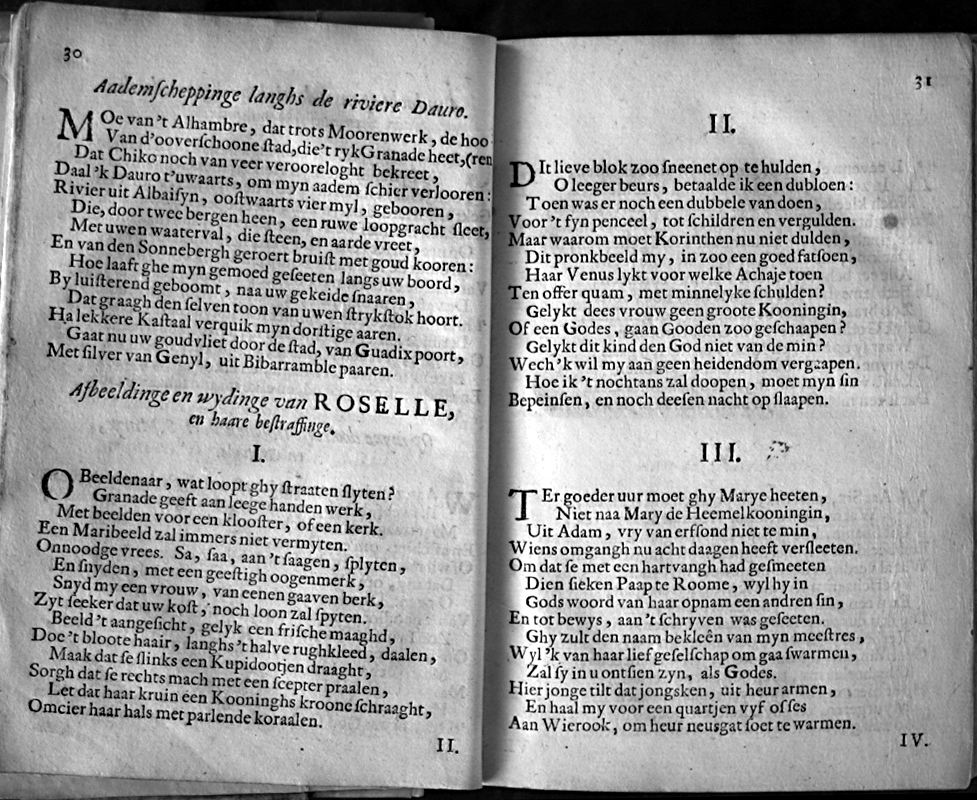 30
Aademſcheppinge langhs de riviere Dauro.
MOe van 't Alhambre, dat trots Moorenwerk, de hoo
Van d'ooverſchoone ſtad, die't ryk Granade heet, (ren
Dat Chiko noch van veer verooreloght bekreet,
Daal 'k Dauro t'uwaarts, om myn aadem ſchier verlooren:
Rivier uit Albaiſyn, ooſtwaarts vier myl, gebooren,
Die, door twee bergen heen, een ruwe loopgracht ſleet,
Met uwen waaterval, die ſteen, en aarde vreet,
En van den Sonnebergh geroert bruiſt met goud kooren:
Hoe laaft ghe myn gemoed geſeeten langs uw boord,
By luiſterend geboomt, naa uw gekeide ſnaaren,
Dat graagh den ſelven toon van uwen ſtrykſtok hoort.
Ha lekkere Kaſtaal verquik myn dorſtige aaren.
Gaat nu uw goudvliet door de ſtad, van Guadix poort,
Met ſilver van Genyl, uit Bibarramble paaren.
Afbeeldinge en wydinge van ROSELLE,
en haare beſtraffinge.
I.
O Beeldenaar, wat loopt ghy ſtraaten ſlyten?
Granade geeft aan leege handen werk,
Met beelden voor een klooſter, of een kerk.
Een Maribeeld zal immers niet vermyten.
Onnoodge vrees. Sa, ſaa, aan 't ſaagen, ſplyten,
En ſnyden, met een geeſtigh oogenmerk,
Snyd my een vrouw, van eenen gaaven berk,
Zyt ſeeker dat uw koſt, noch loon zal ſpyten.
Beeld 't aangeſicht, gelyk een friſche maaghd,
Doe 't bloote haair, langhs 't halve rughkleed, daalen,
Maak dat ſe ſlinks een Kupidootjen draaght,
Sorgh dat ſe rechts mach met een ſcepter praalen,
Let dat haar kruin een Kooninghs kroone ſchraaght,
Omcier haar hals met parlende koraalen.
II.
31
II.
DIt lieve blok zoo ſneenet op te hulden,
O leeger beurs, betaalde ik een dubloen:
Toen was er noch een dubbele van doen,
Voor 't fyn penceel, tot ſchildren en vergulden.
Maar waarom moet Korinthen nu niet dulden,
Dit pronkbeeld my, in zoo een goed fatſoen,
Haar Venus lykt voor welke Achaje toen
Ten offer quam, met minnelyke ſchulden?
Gelykt dees vrouw geen groote Kooningin,
Of een Godes, gaan Gooden zoo geſchaapen?
Gelykt dit kind den God niet van de min?
Wech 'k wil my aan geen heidendom vergaapen.
Hoe ik 't nochtans zal doopen, moet myn ſin
Bepeinſen, en noch deeſen nacht op ſlaapen.
III.
TEr goeder uur moet ghy Marye heeten,
Niet naa Mary de Heemelkooningin,
Uit Adam, vry van erfſond niet te min,
Wiens omgangh nu acht daagen heeft verſleeten.
Om dat ſe met een hartvangh had geſmeeten
Dien ſieken Paap te Roome, wyl hy in
Gods woord van haar opnam een andren ſin,
En tot bewys, aan 't ſchryven was geſeeten.
Ghy zult den naam bekleên van myn meeſtres,
Wyl 'k van haar lief geſelſchap om gaa ſwarmen,
Zal ſy in u ontſien zyn, als Godes.
Hier jonge tilt dat jongsken, uit heur armen,
En haal my voor een quartjen vyf ofſes
Aan Wierook, om heur neusgat ſoet te warmen.
IV.